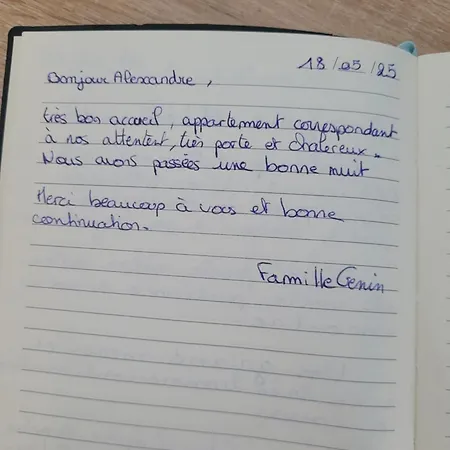 18/05/25
Bonjour Alexandre,
très bon accueil, appartement correspondant
à nos attentent, très porte et chalereux.
Nous avons passées une bonne nuit
Merci beaucoup à vous et bonne
continuation.
Famille Genin